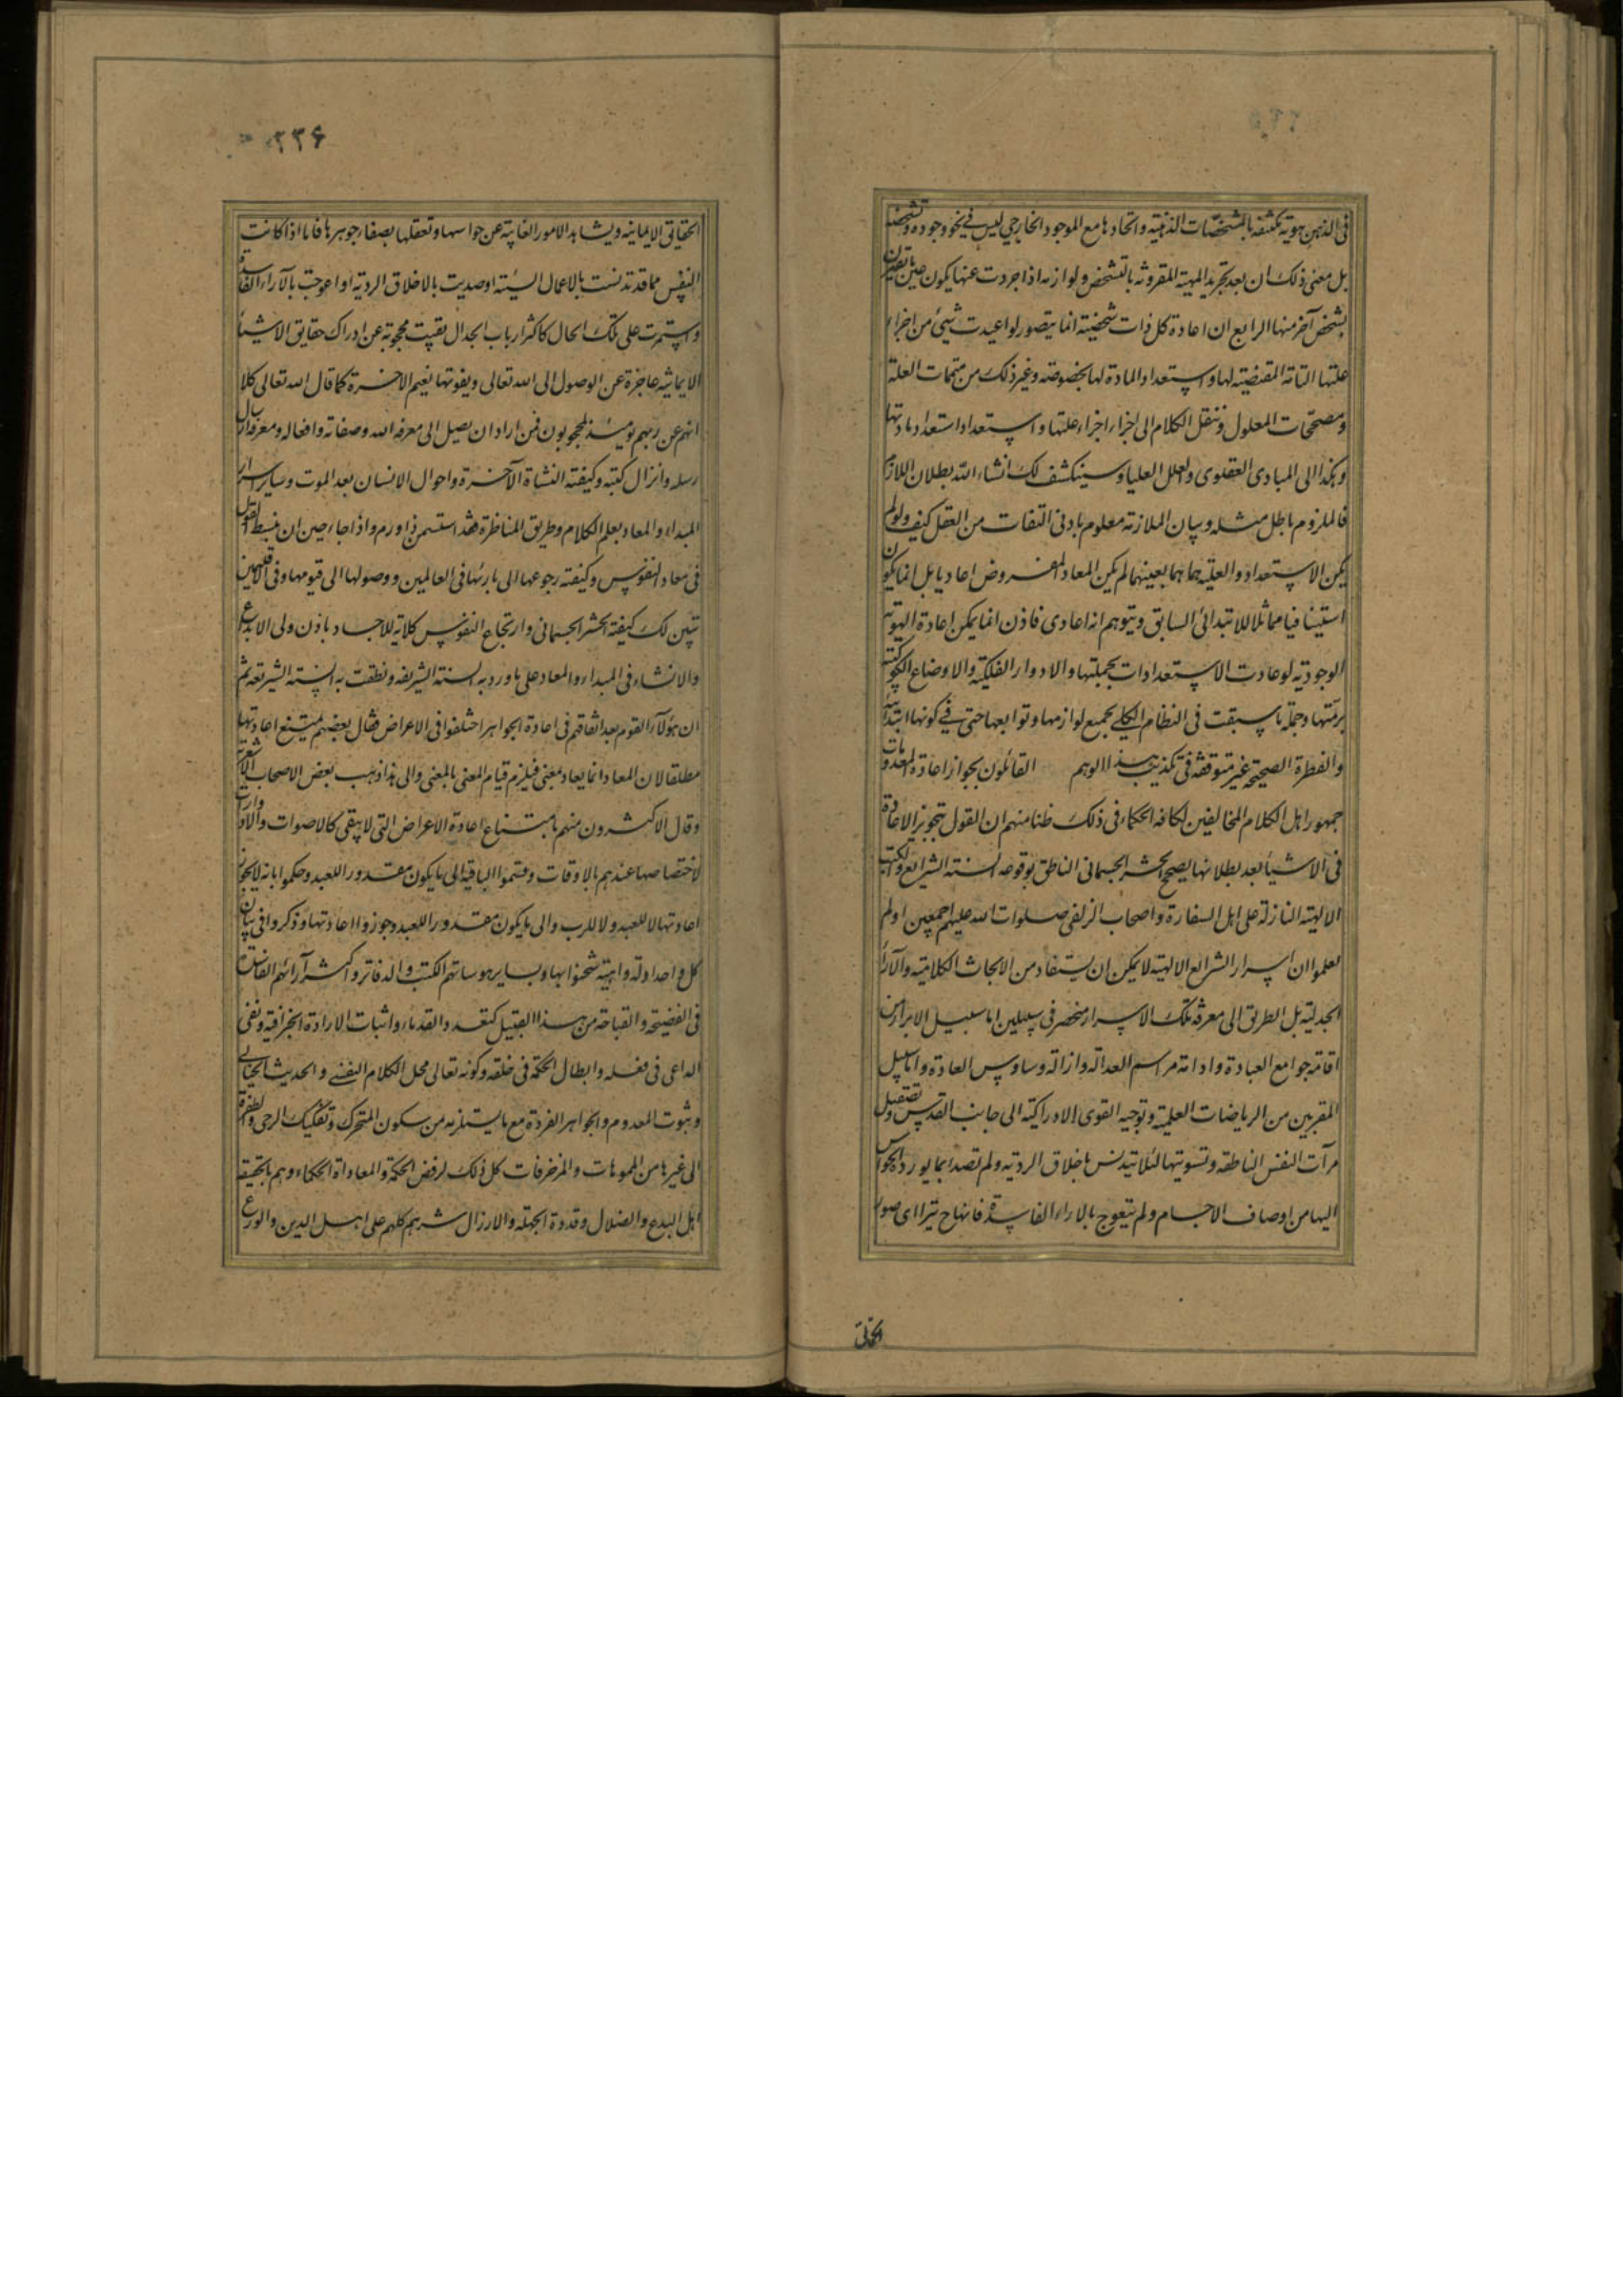 فى الذهن هوية مكتنفة بالمشخصات الذهنية واتحادها مع الموجود الخارجي ليس في نحو وجوده وتشخصه
بل معنى ذلك ان بعد تجريد المهية المقرونة بالتشخص ولوازمه اذا جردت عنها يكون عين ما تعين
بشخص آخر منها الرابع ان اعادة كل ذات شخصية انما يتصور لو اعيدت شيئ من اجزاء
علتها التامة المقتضية لها واستعداد المادة لها بخصوصه وغير ذلك من متممات العلة
ومصححات المعلول وننقل الكلام الى اجزاء اجزاء علتها واستعداد استعداد مادتها
وهكذا الى المبادى القصوى والعلل العليا وسينكشف لك انشاء الله بطلان اللازم
فالملزوم باطل مثله وبيان الملازمة معلوم بادنى التفات من العقل كيف ولو لم
يكن الاستعداد والعلية هما هما بعينهما لم يكن المعاد المفروض اعاديا بل انما يكون
استينافيا مماثلا للابتدائى السابق ويتوهم انه اعادى فاذن انما يمكن اعادة الهوية
الوجودية لو عادت الاستعدادات بجملتها والادوار الفلكية والاوضاع الكوكبية
برمتها وجملة ما سبقت فى النظام الكلي بجميع لوازمها وتوابعها حتى في كونها ابتدائية
والفطرة الصحيحة غير متوقفة فى تكذيب هذا الوهم القائلون بجواز اعادة المعدومات
جمهور اهل الكلام المخالفين لكافة الحكماء فى ذلك ظنا منهم ان القول بتجويز الاعادة
فى الاشياء بعد بطلانها يصحح الحشر الجسمانى الناطق بوقوعه السنة الشرايع والكتب
الالهية النازلة على اهل السفارة واصحاب الزلفى صلوات الله عليهم اجمعين ولم
يعلموا ان اسرار الشرايع الالهية لا يمكن ان يستفاد من الابحاث الكلامية والآراء
الجدلية بل الطريق الى معرفة تلك الاسرار منحصر فى سبيلين اما سبيل الابرار من
اقامة جوامع العبادة وادامة مراسم العدالة وازالة وساوس العادة واما سبيل
المقربين من الرياضات العلمية وتوجيه القوى الادراكية الى جانب القدس وتصقيل
مرآت النفس الناطقة وتسويتها لئلا يتدنس باخلاق الردية ولم تصدأ بما يورده الحواس
اليها من اوصاف الاجسام ولم يتعوج بالاراء الفاسدة فانها ح تترااى صور
الحقايق
٢٢۶
الحقايق الايمانية ويشاهد الامور الغائبة عن حواسها وتعقلها بصفاء جوهرها فاما اذا كانت
النفس مما قد تدنست بالاعمال السيئة او صديت بالاخلاق الردية او اعوجت بالآراء الفاسدة
واستمرت على تلك الحال كاكثر ارباب الجدال بقيت محجوبة عن ادراك حقايق الاشياء
الايمانية عاجزة عن الوصول الى الله تعالى ويفوتها نعيم الاخرة كما قال الله تعالى كلا
انهم عن ربهم يومئذ لمحجوبون فمن اراد ان يصل الى معرفة الله وصفاته وافعاله ومعرفة ارسال
رسله وانزال كتبه وكيفية النشأة الآخرة واحوال الانسان بعد الموت وساير اسرار
المبداء والمعاد بعلم الكلام وطريق المناظرة فقد استسمن ذا ورم واذا جاء حين ان نبسط القول
فى معاد النفوس وكيفية رجوعها الى بارئها فى العالمين ووصولها الى قيومها وفى الاقليمين
تبين لك كيفية الحشر الجسمانى وارتجاع النفوس كلاته للاجساد باذن ولى الابداع
والانشاء فى المبداء والمعاد على ما ورد به السنة الشريفة ونطقت به السنة الشريعة ثم
ان هؤلآء القوم بعد اتفاقهم فى اعادة الجواهر اختلفوا فى الاعراض فقال بعضهم يمتنع اعادتها
مطلقا لان المعاد انما يعاد معنى فيلزم قيام المعنى بالمعنى والى هذا ذهب بعض الاصحاب الاشعرية
وقال الاكثرون منهم بامتناع اعادة الاعراض التى لا يبقى كالاصوات والارادات
لاختصاصها عندهم بالاوقات وقسموا الباقية الى ما يكون مقدورا للعبد وحكموا بانه لا يجوز
اعادتها لا للعبد ولا للرب والى ما يكون مقدورا للعبد وجوزوا اعادتها وذكروا فى بيان
كل واحد ادلة واهية شحنوا بها وبساير هوساتهم الكتب والدفاتر واكثر آرائهم الفاسدة
فى الفضيحة والقباحة من هذا القبيل كتعدد القدماء واثبات الارادة الجزافية ونفى
الداعى فى فعله وابطال الحكمة فى خلقه وكونه تعالى محل الكلام النفسي والحديث الخيالي
وثبوت المعدوم والجواهر الفردة مع ما يستلزمه من سكون المتحرك وتفكيك الرحى والطفرة
الى غيرها من المموهات والمزخرفات كل ذلك لرفض الحكمة والمعاداة الحكماء وهم بالحقيقة
اهل البدع والضلال وقدوة الجهلة والارزال شرهم كلهم على اهل الدين والورع